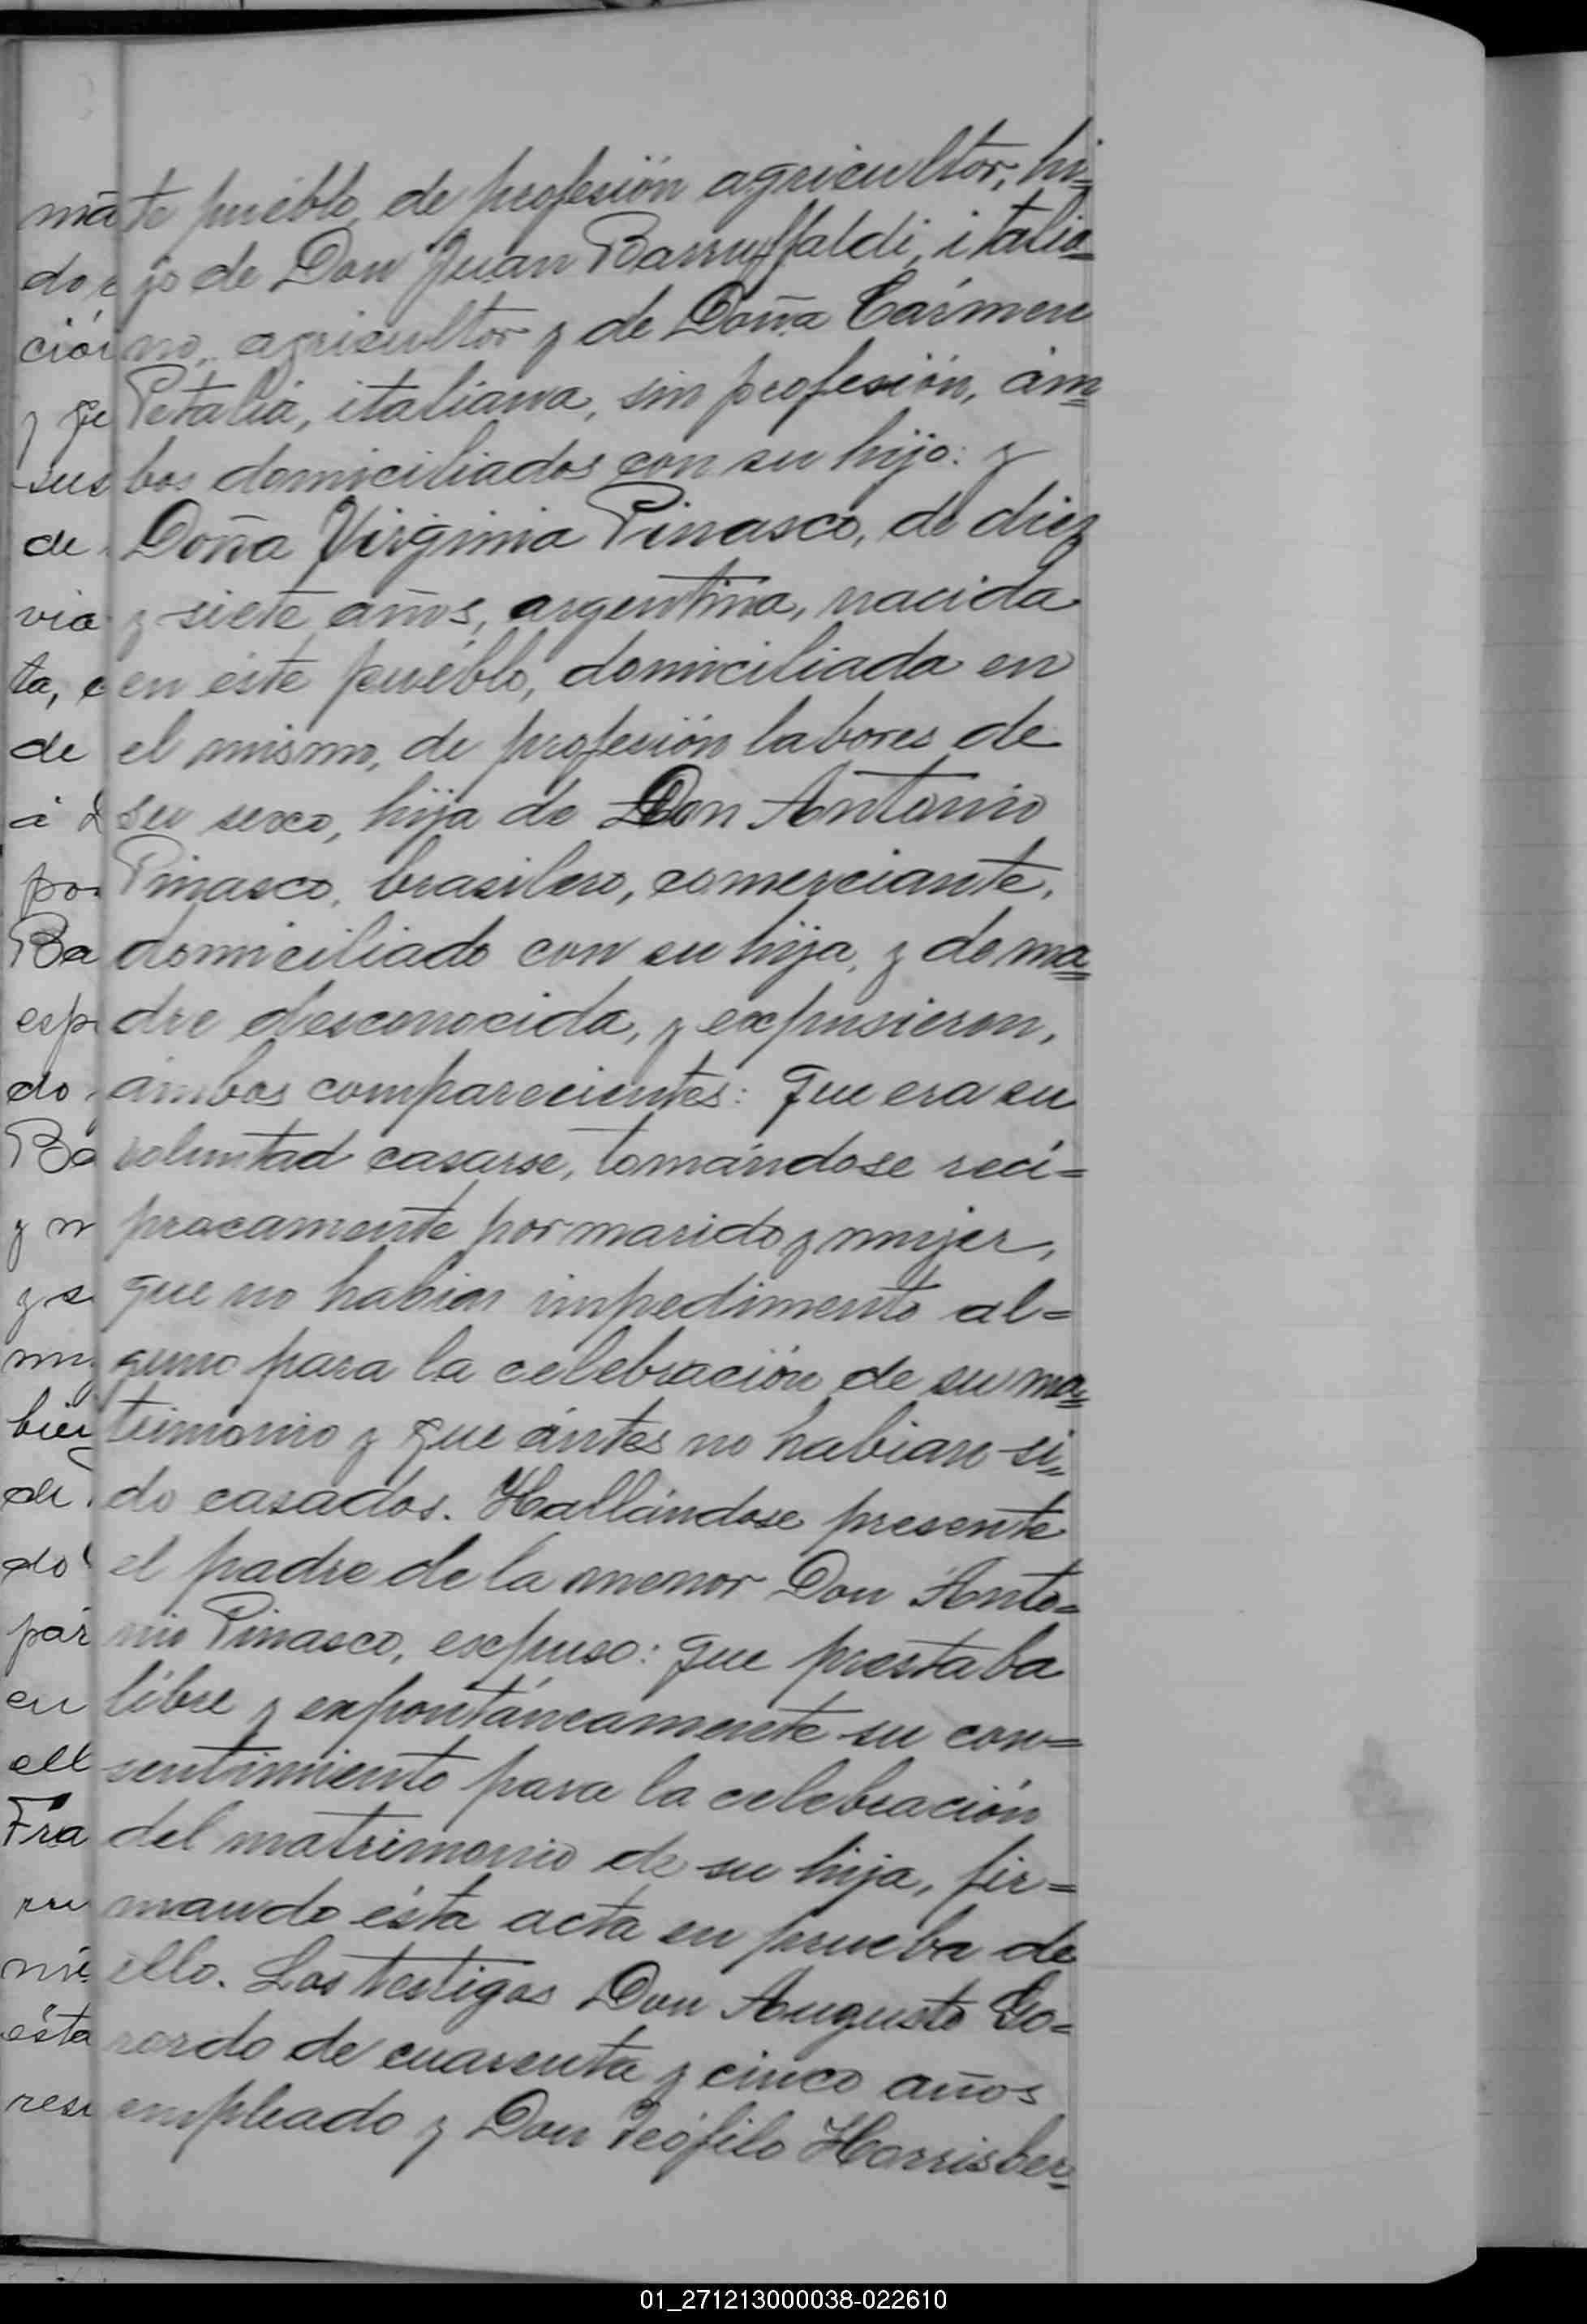 te pueblo, de profesión agricultor, hi=
jo de Don Juan Barruffaldi, italia=
no, agricultor y de Doña Cármen
Petalia, italiana, sin profesión, ám=
bos domiciliados con su hijo: y
Doña Virginia Pinasco, de diez
y siete años, argentina, nacida
en éste pueblo, domiciliada en
el mismo, de profesión labores de
su sexo, hija de Don Antonio
Pinasco, brasilero, comerciante,
domiciliado con su hija, y de ma=
dre desconocida, y expusieron,
ámbos comparecientes: que era su
voluntad casarse, tomándose recí=
procamente por marido y mujer,
que no habia impedimento al=
guno para la celebración de su ma=
trimonio y que ántes no habian si=
do casados. Hallándose presente
el padre de la menor Don Anto=
nio Pinasco, expuso: que prestaba
libre y expontáneamente su con=
sentimiento para la celebración
del matrimonio de su hija, fir=
mando ésta acta en prueba de
ello. Los testigos Don Augusto Go=
rordo de cuarenta y cinco años
empleado y Don Teófilo Harrisber=
01_271213000038-022610